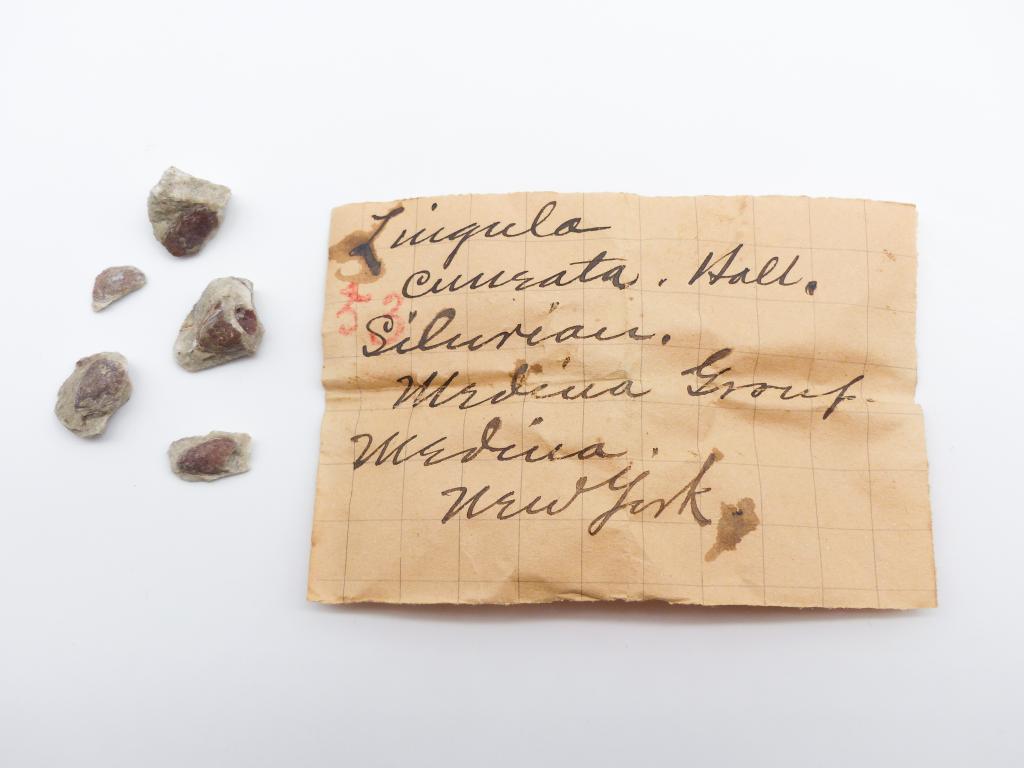 Lingula
cuneata. Hall.
Silurian.
Medina Group.
Medina.
New York